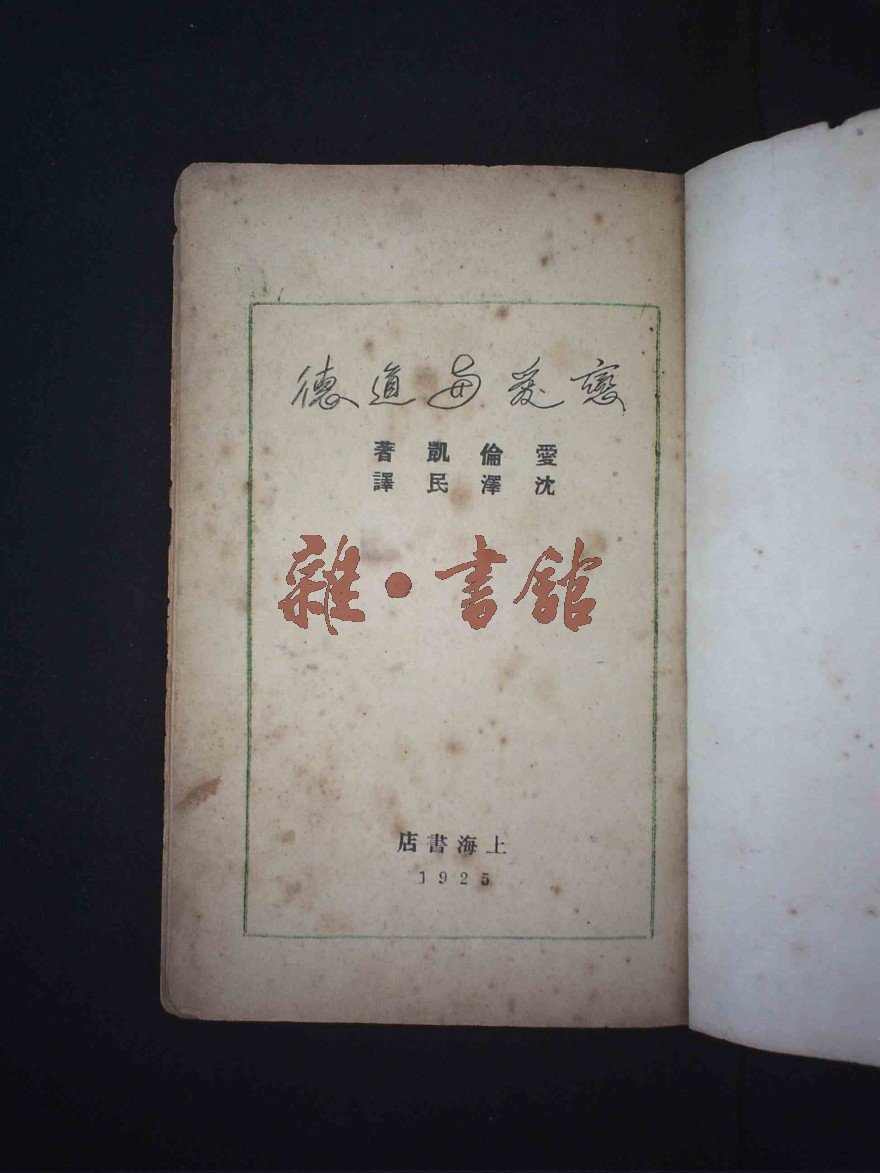 戀愛與道德
愛倫凱著
沈澤民譯
雜·書館
上海書店
1925